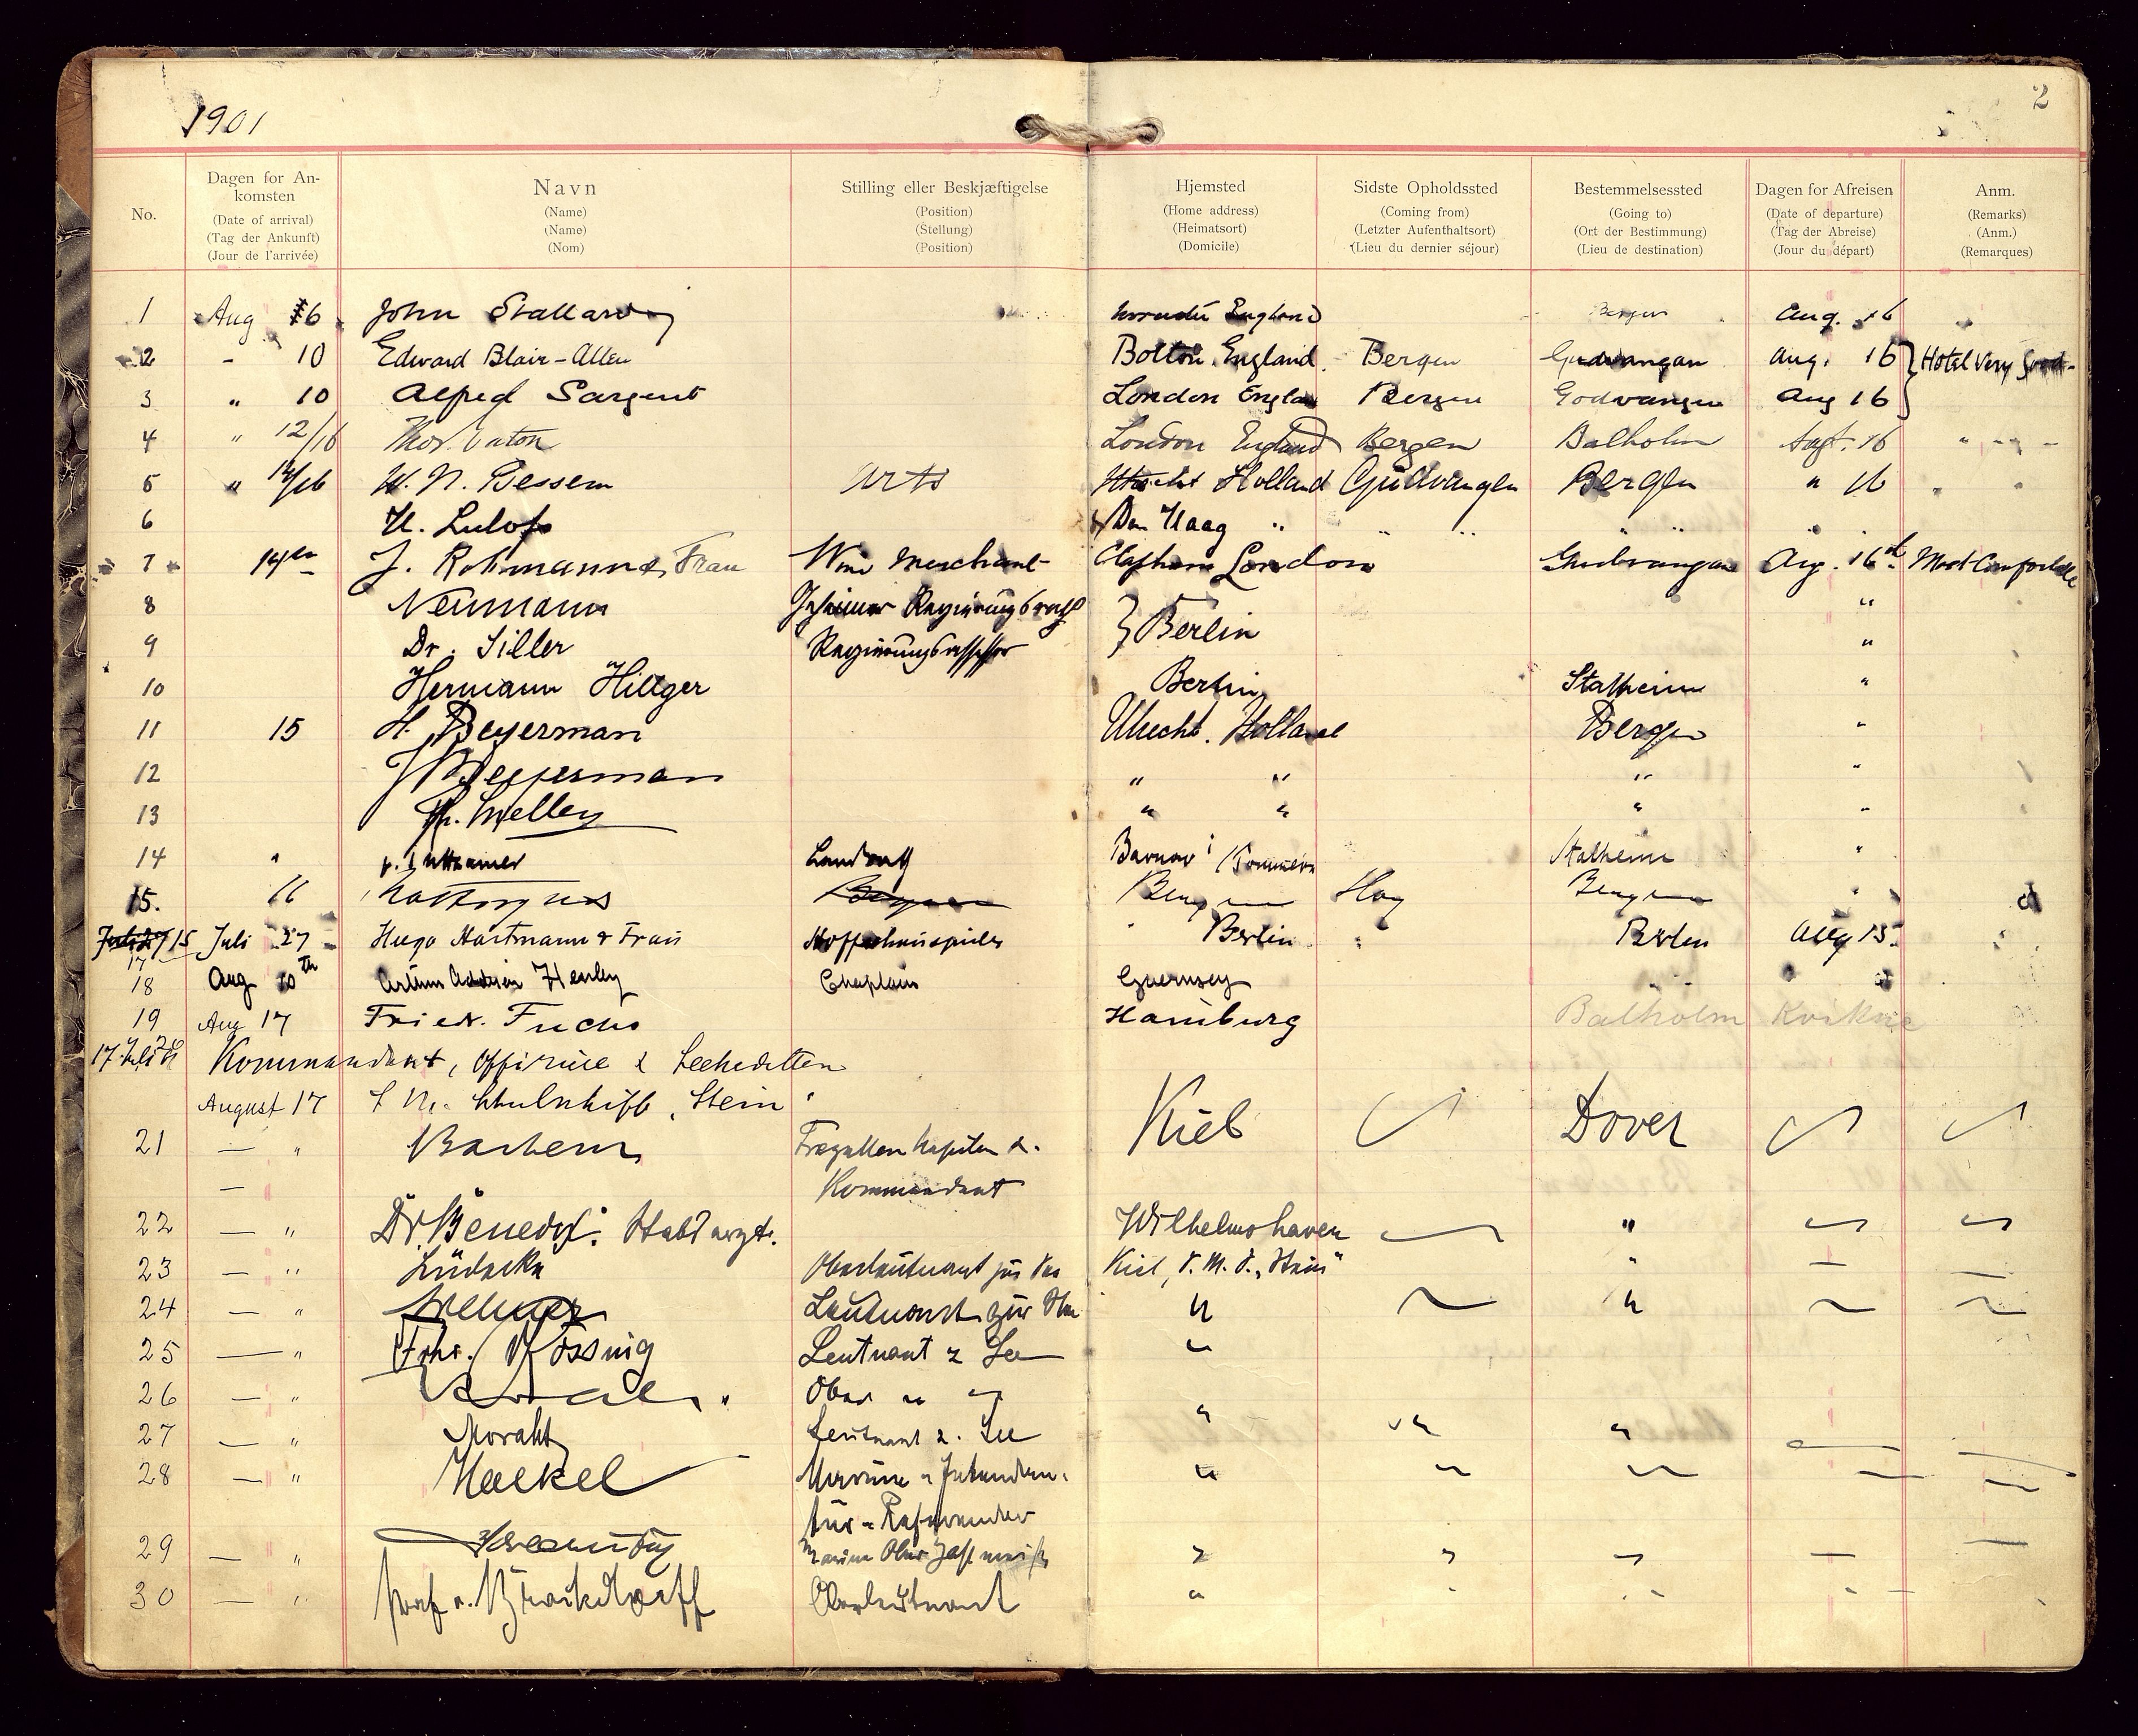 1901
2
No.
Dagen for An-
komsten
(Date of arrival)
(Tag der Ankunft)
(Jour de l'arrivée)
Navn
(Name)
(Name)
(Nom)
Stilling eller Beskjæftigelse
(Position)
(Stellung)
(Position)
Hjemsted
(Home address)
(Heimatsort)
(Domicile)
Sidste Opholdssted
(Coming from)
(Letzter Aufenthaltsort)
(Lieu du dernier séjour)
Bestemmelsessted
(Going to)
(Ort der Bestimmung)
(Lieu de destination)
Dagen for Afreisen
(Date of departure)
(Tag der Abreise)
(Jour du départ)
Anm.
(Remarks)
(Anm.)
(Remarques)
1 Aug 6 John Stallard England Bergen Aug. 16
2 - 10 Edward Blair-Allen Bolton. England. Bergen Gudvangen Aug. 16 Hotel Very Good
3 " 10 Alfred Sargent London Bergen Godvangen Aug 16
4 " 12/16 London England Bergen Balholm 16 "
5 " W. N. Bessem Arts Utrecht Holland Gudvangen Bergen " 16 " "
6 H. Lulofs Den Haag " " " " " "
7 14th J. & Frau Wine Merchant Clapham London Gudvangen Aug. 16th Most Comfortable
8 Neumann Geheimer Regierungsrath Berlin "
9 Dr. Siller Regierungsassessor "
10 Hermann Hillger Berlin Stalheim "
11 15 H. Beyerman Utrecht. Holland Bergen "
12 Beyerman " " " "
13 " " " "
14 " v. Puttkamer Landrath Stalheim "
15. 16 Bergen Bergen
15 Juli 27 Hugo Hartmann & Frau Hofschauspieler Berlin Aug 15.
17
18 Aug 10th Henley Chaplain Guernsey
19 Aug 17 Friedr. Fuchs Hamburg Balholm Kviknes
Kommandant, Offiziere & Seekadetten
August 17 S. M. Schulschiff „Stein" Kiel Dover
21 — " Fregattenkapitän &
— Kommandant
22 — " Dr. Stabsarzt. Wilhelmshaven "
23 — " Lüdecke Oberleutnant zur See Kiel, S. M. S. „Stein" "
24 — " Leutnant zur See " "
25 — " Frhr. Leutnant z See "
26 — " Ober " "
27 — " Moraht Leutnant z. See " " "
28 — " Haekel Marine-Intendan-
tur-Referendar
29 — " Marine Ober
30 — " Graf v. Brockdorff Oberleutnant "